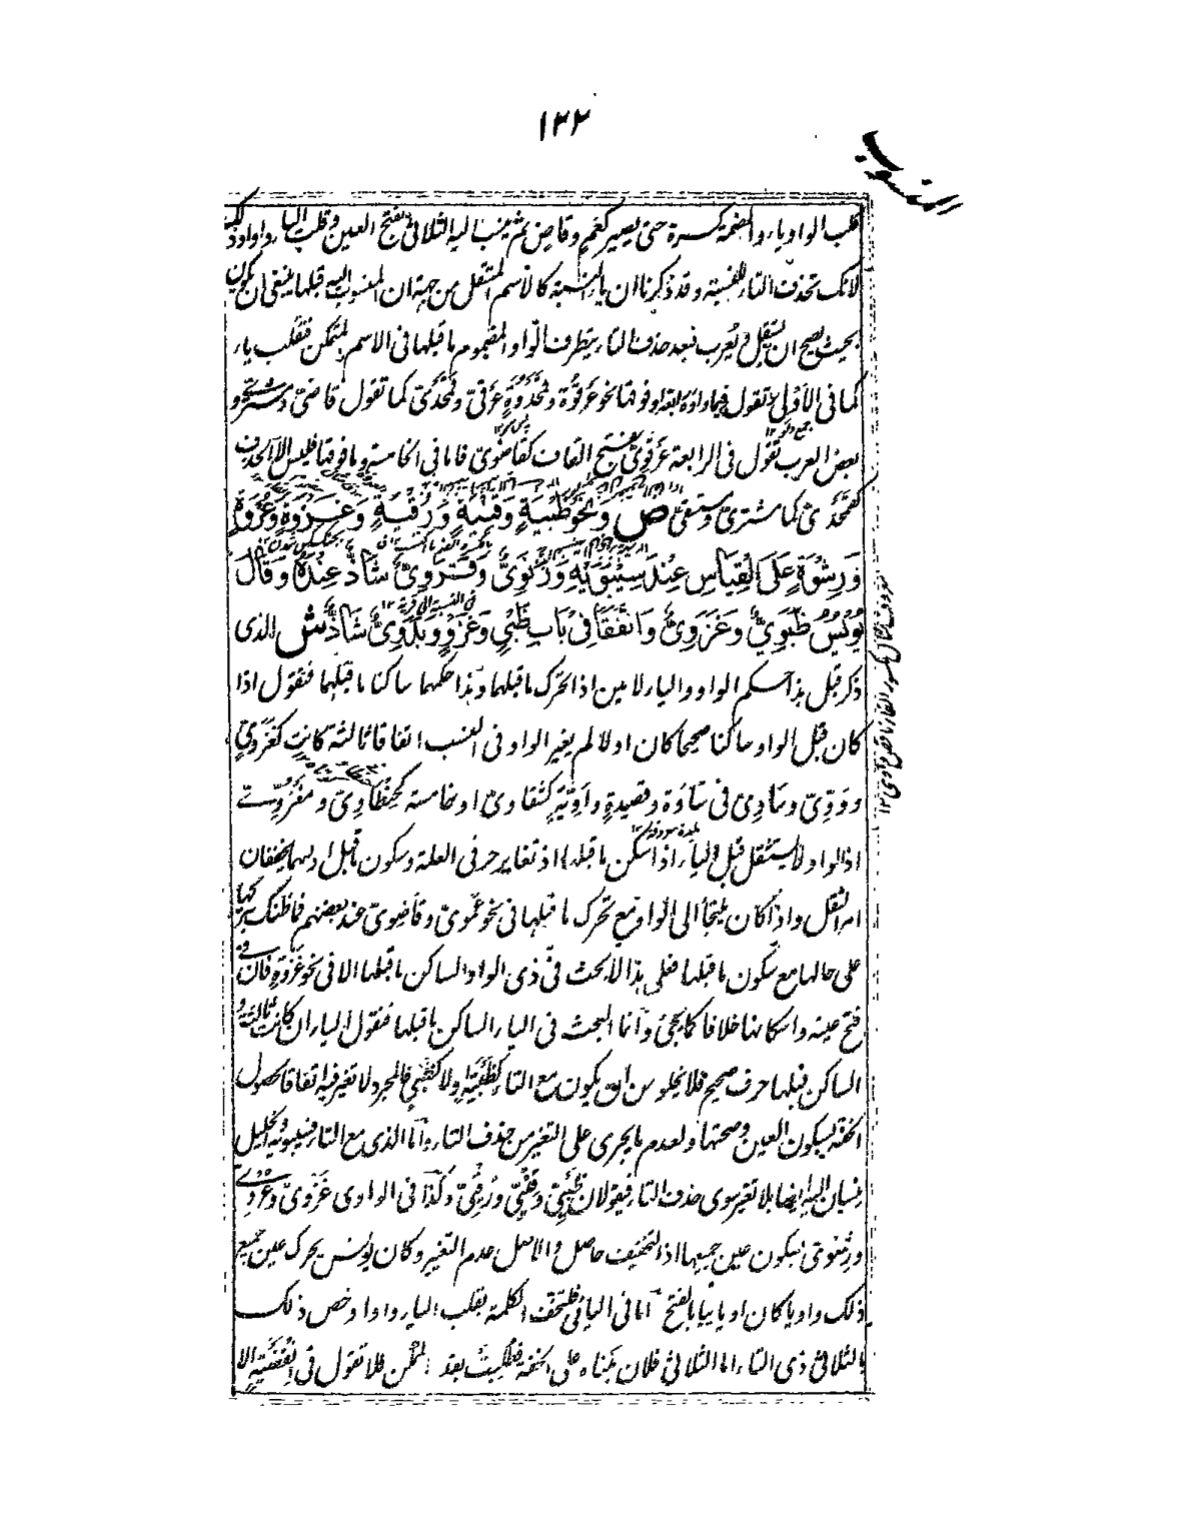 ١٣٢
المنسوب
قلب الواو ياء والضمة كسرة حتى يصير كعم وقاض ثم ينسب اليه الثلاثى بفتح العين وقلب الياء واوا وذلك
لانك تحذف التاء للنسبة وقد ذكرنا ان ياء النسبة كالاسم المستقل من جهة ان المنسوب اليه قبلها ينبغى ان يكون
بحيث يصح ان يستقل ويعرب فبعد حذف التاء يتطرف الواو المضموم ما قبلها فى الاسم المتمكن فتقلب ياء
كما فى الأَدْلِى وتقول فيما واوه رابعة او فوقها نحو عَرْقُوَة وقَمَحْدُوَةٍ عَرْقىّ وقَمَحْدىّ كما تقول قاضىّ ومشترىّ و
بعض العرب تقول فى الرابعة عرقوىّ بفتح القاف كقاضوىّ فاما فى الخامسة وما فوقها فليس الا الحذف
كقَمَحْدىّ كما مشترىّ ومستقىّ ص وَنَحْوُ ظَبْيَةٍ وَقِنْيَةٍ وَرُقْيَةٍ وَغَزْوَةٍ وَعُرْوَةٍ
وَرِشْوَةٍ عَلَى الْقِيَاسِ عِنْدَ سِيبَوَيْهِ وَزِنَوِيٌّ وَقَرَوِيٌّ شَاذٌّ عِنْدَهُ وَقَالَ
يُونُسُ ظَبَوِيٌّ وَغَزَوِيٌّ وَاتَّفَقَا فِى بَابِ ظَبْيٍ وَغَزْوٍ وَبَدَوِيٌّ شَاذٌّ ش الذى
ذكر قبل هذا حكم الواو والياء لامين اذا تحرك ما قبلهما وهذا حكمهما ساكنا ما قبلهما فنقول اذا
كان قبل الواو ساكنا صحيحا كان اولا لم يغير الواو فى النسب اتفاقا ثالثة كانت كغَزْوىّ
ودَوّىّ وساوىّ فى ساوة وقصيدةٍ واويّةٍ كشقاوىّ او خامسة كحِنْطَاوىّ ومَغْزُوّىّ
اذ الواو لا يستثقل قبل الياء اذا سكن ما قبلها اذ تغاير حرفى العلة وسكون ما قبل اولهما يخففان
امر الثقل واذا كان يلتجأ الى الواو مع تحرك ما قبلها فى نحو عَمَوىّ وقاضوىّ عند بعضهم فما ظنك بتركها
على حالها مع سكون ما قبلها فعلى هذا لا بحث فى ذى الواو الساكن ما قبلها الا فى نحو غَزْوَةٍ فان فى
فتح عينه واسكانها خلافا كما يجئ وأما البحث فى الياء الساكن ما قبلها فنقول الياء ان كانت ثالثة و
الساكن قبلها حرف صحيح فلا يخلو من ان يكون مع التاء كظَبْيَةٍ ولا كظَبْىٍ فالمجرد لا تغير فيه اتفاقا لحصول
الخفة بسكون العين وصحتها ولعدم ما يجرى على التغير من حذف التاء وأما الذى مع التاء فسيبويه والخليل
ينسبان اليه ايضا بلا تغير سوى حذف التاء فيقولان ظَبْيِىّ وقِنْيِىّ ورُقْيِىّ وكذا فى الواوى غَزْوىّ وعُرْوىّ
ورِشْوىّ بسكون عين جميعها اذ التخفيف حاصل والاصل عدم التغيير وكان يونس يحرك عين جميع
ذلك واويا كان او يائيا بالفتح أما فى اليائى فلتخف الكلمة بقلب الياء واوا وخص ذلك
بالثلاثى ذى التاء اما الثلاثى فلان مبناه على الخفة فطلبت بقدر الممكن فلا تقول فى اِنْقَضْيَةٍ الا